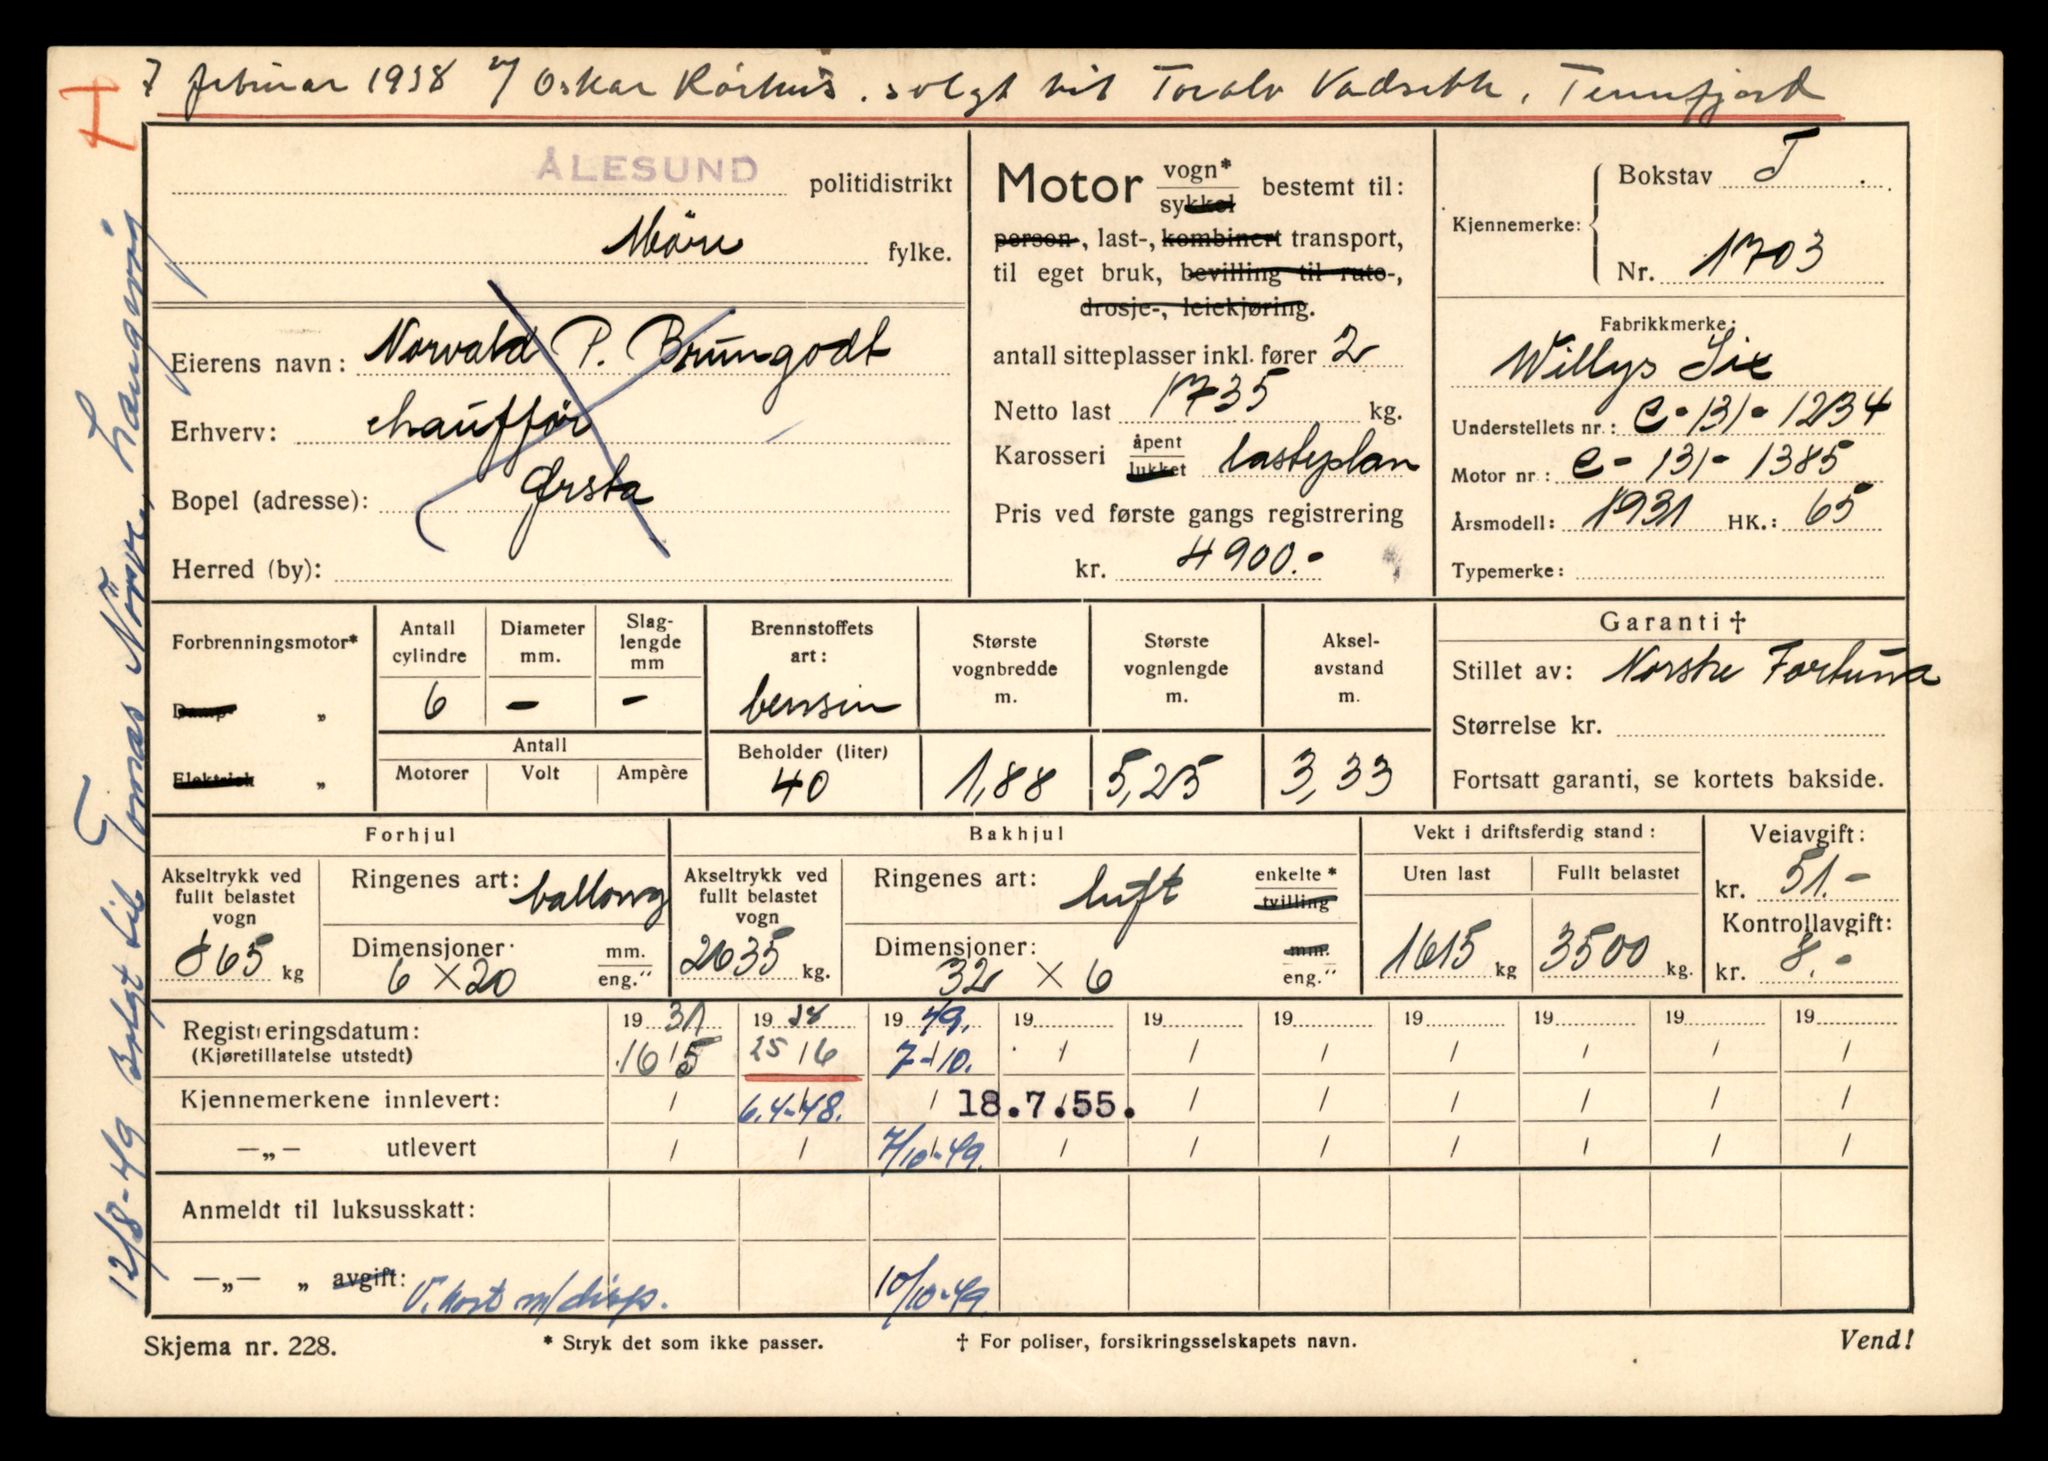 7 februar 1938 v/ Oskar Rörhus. solgt til Toralv Vadsethh, Tennfjord
T
ÅLESUND politidistrikt
Möre fylke.
Eierens navn: Norvald P. Brungodt
Erhverv: chaufför
Bopel (adresse): Ørsta
Herred (by):
Motor vogn* / sykkel bestemt til:
person-, last-, kombinert transport,
til eget bruk, bevilling til rute-,
drosje-, leiekjøring.
antall sitteplasser inkl. fører 2
Netto last 1735 kg.
Karosseri åpent / lukket lasteplan
Pris ved første gangs registrering
kr. 4900.-
Kjennemerke: Bokstav T
Nr. 1703
Fabrikkmerke:
Willys Six
Understellets nr.: C-131-1234
Motor nr: C-131-1385
Årsmodell: 1931 HK.: 65
Typemerke:
Forbrenningsmotor*
Damp- „
Elektrisk „
Antall cylindre 6
Diameter mm. -
Slag-lengde mm -
Antall
Motorer Volt Ampère
Brennstoffets art: bensin
Beholder (liter) 40
Største vognbredde m. 1,88
Største vognlengde m. 5,25
Aksel-avstand m. 3,33
Garanti †
Stillet av: Norske Fortuna
Størrelse kr.
Fortsatt garanti, se kortets bakside.
Forhjul
Akseltrykk ved fullt belastet vogn 865 kg
Ringenes art: ballong
Dimensjoner: 6 X 20 mm. / eng."
Bakhjul
Akseltrykk ved fullt belastet vogn 2635 kg.
Ringenes art: luft enkelte* / tvilling
Dimensjoner: 32 X 6 mm. / eng."
Vekt i driftsferdig stand:
Uten last 1615 kg
Fullt belastet 3500 kg.
Veiavgift:
kr. 51.-
Kontrollavgift:
kr. 8.-
Registreringsdatum: 1931 1938 1949. 19 19 19 19 19 19 19
(Kjøretillatelse utstedt) 16/5 25/6 7-10. / / / / / / /
Kjennemerkene innlevert: / 6.4-48. / 18.7.55. / / / / / /
—„— utlevert / / 7/10-49. / / / / / / /
Anmeldt til luksusskatt:
—„— „ avgift: V. kort m/disp. 10/10-49.
Skjema nr. 228.
* Stryk det som ikke passer.
† For poliser, forsikringsselskapets navn.
Vend!
12/8-49 Solgt til Tomas Nörve, Langevåg